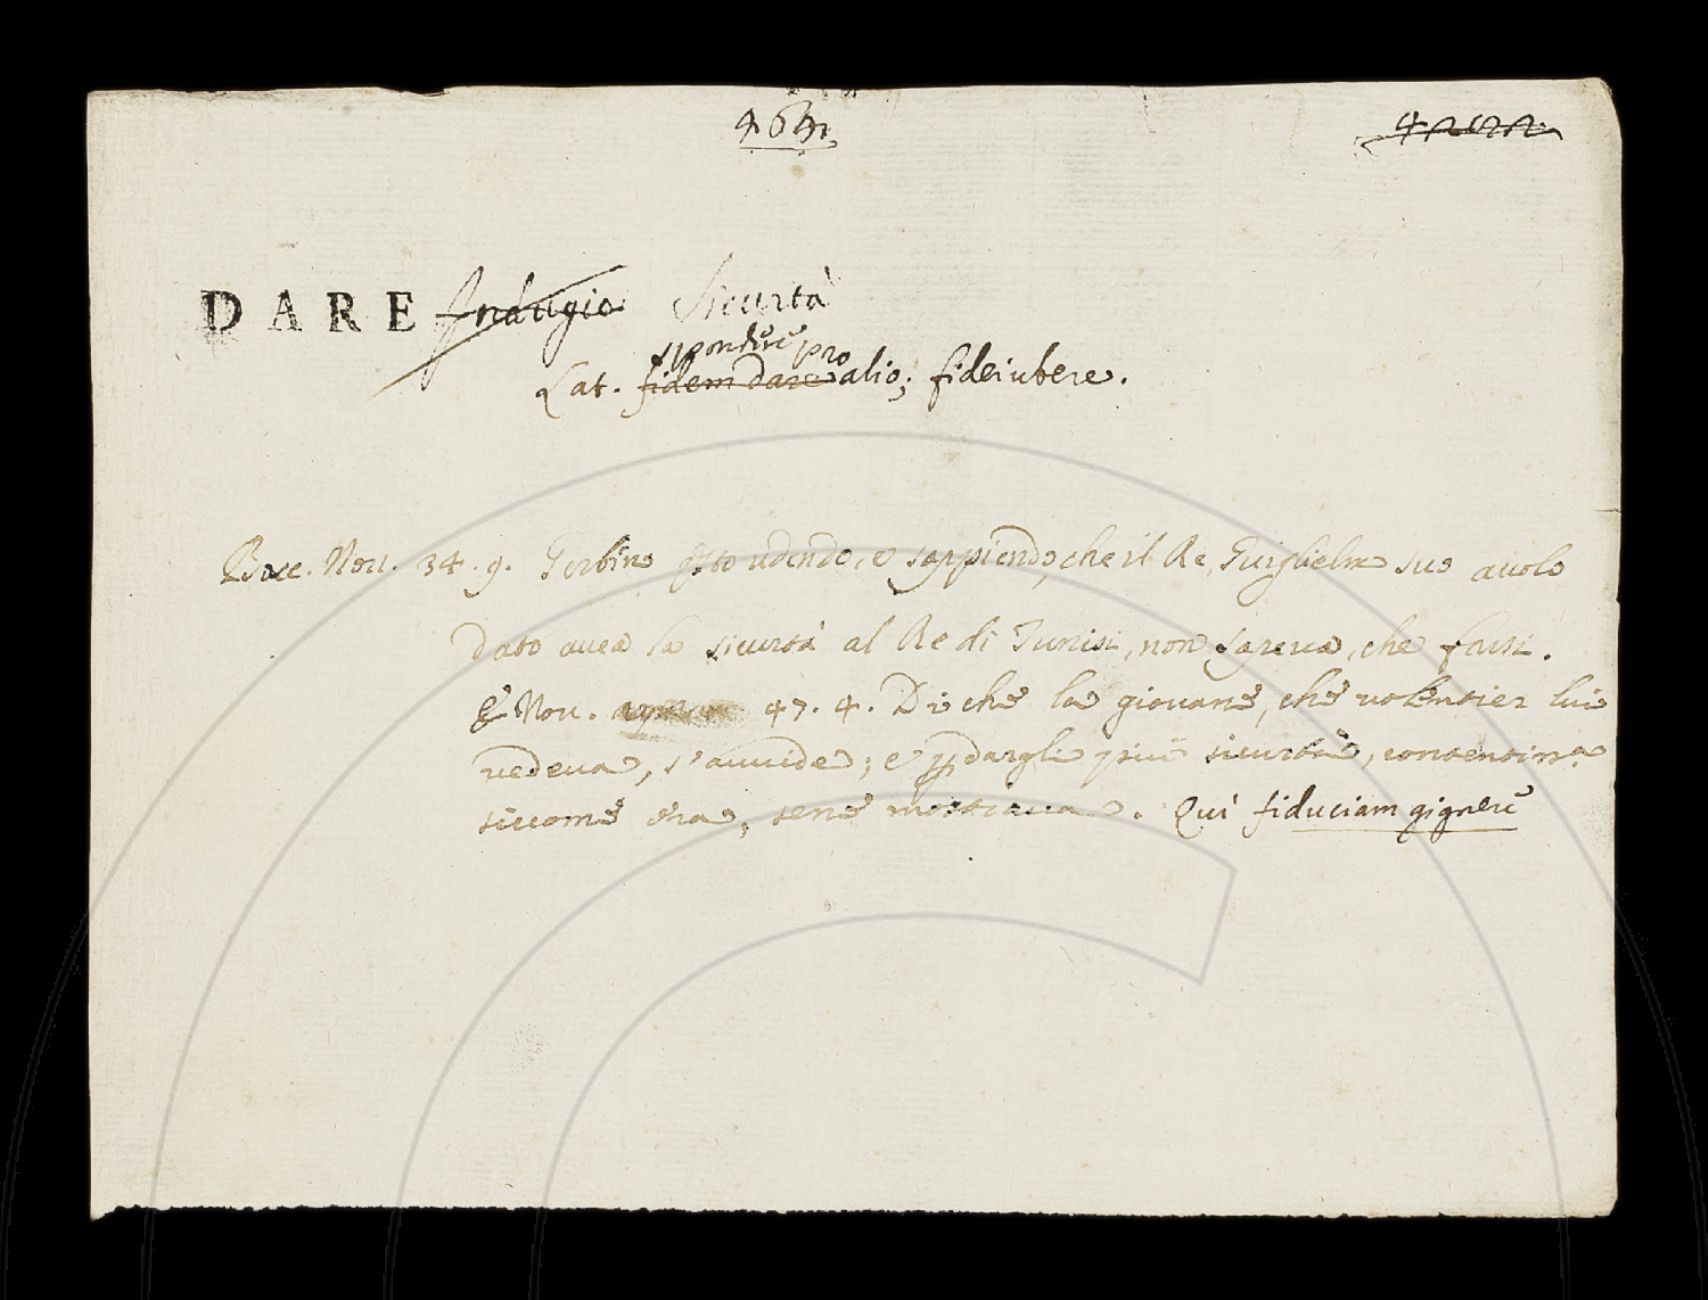 DARE Indugio Sicurtà
spondere pro
Lat. fidem dare alio; fideiubere.
Bocc. Nou. 34. 9. Gerbino qsto udendo, e sappiendo, che il Re Guiglielmo suo auolo
dato auea la sicurtà al Re di Tunisi, non sapeua, che farsi.
E Nou. 47. 4. Di che la giouane, che uolentier lui
uedeua, s'auuide; e p dargli più sicurtà, contentissa
siccome era, sene mostraua. Qui fiduciam gignere